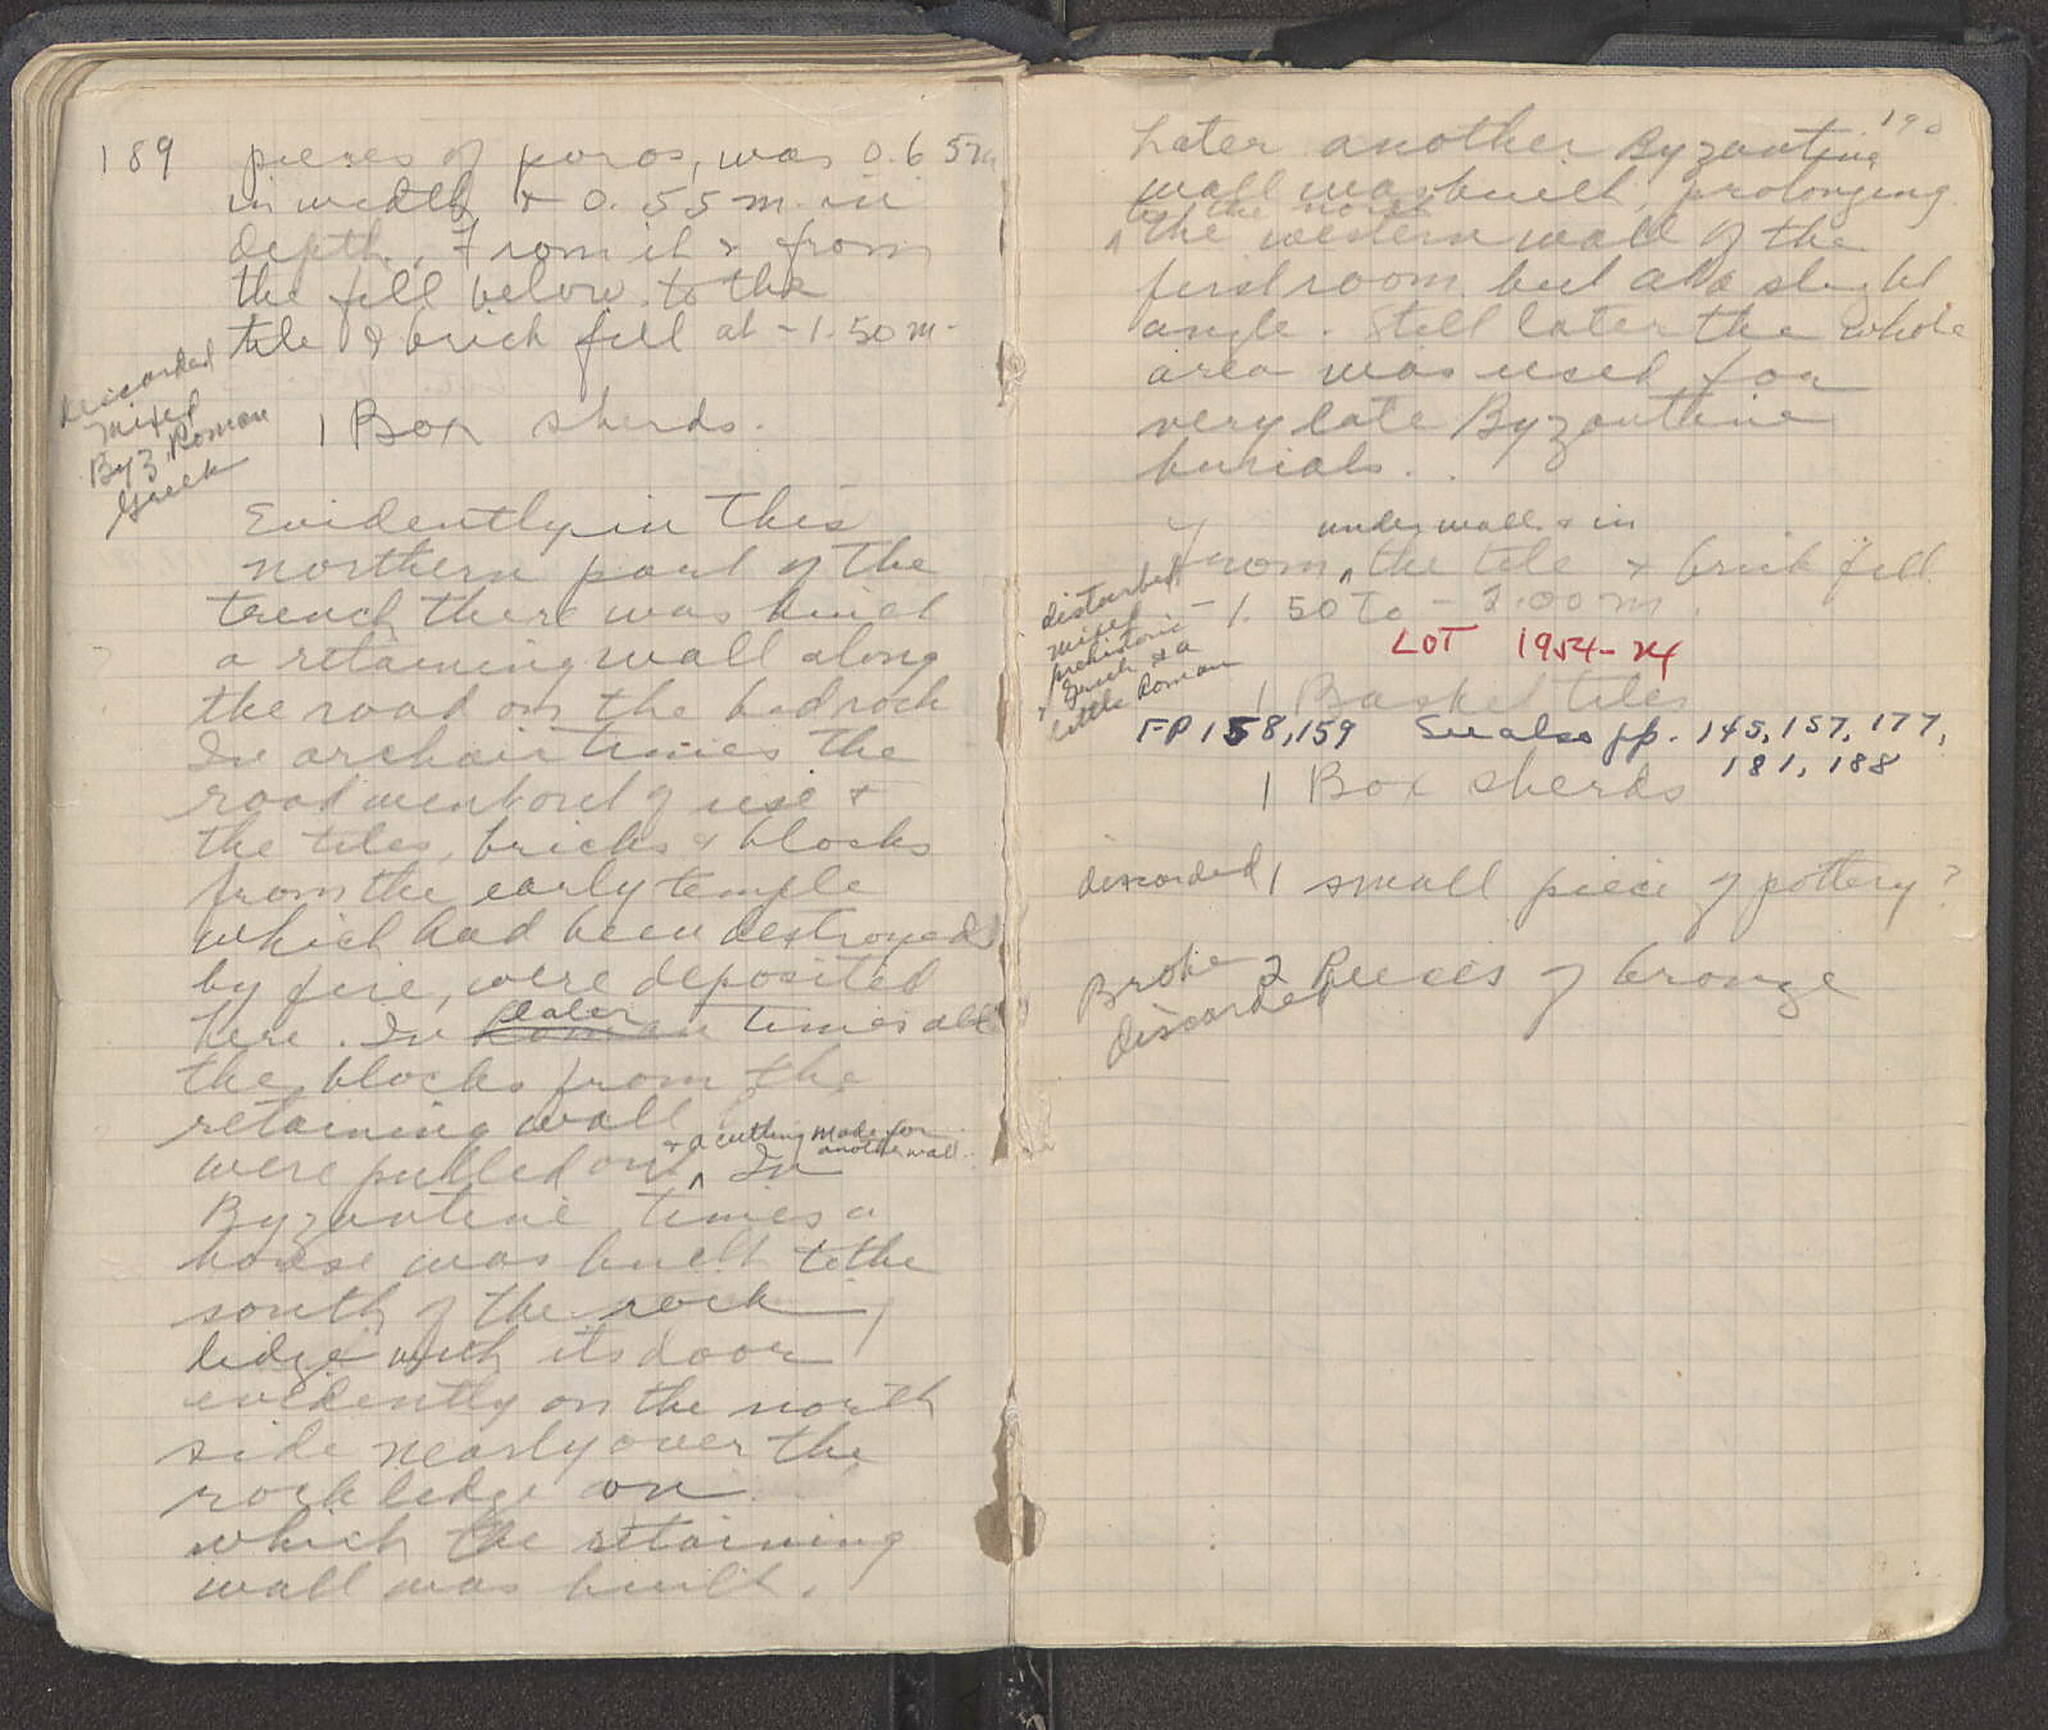 189
pieces of poros, was 0.65m
in width & 0.55m. in
depth. From it & from
the fill below to the
tile & brick fill at -1.50m-
discarded
mixed
Byz, Roman
Greek
1 Box sherds.
Evidently in this
northern part of the
trench there was built
a retaining wall along
the road on the bedrock
In archaic times the
road went out of use &
the tiles, bricks & blocks
from the early temple
which had been destroyed
by fire, were deposited
later
here. In Roman times all
the blocks from the
retaining wall
& a cutting made for
another wall.
were pulled out ^ In
Byzantine times a
house was built to the
south of the rock
ledge with its door
evidently on the north
side nearly over the
rock ledge on
which the retaining
wall was built.
190
Later another Byzantine
wall was built, prolonging
to the north
^ the western wall of the
first room but at a slight
angle. Still later the whole
area was used for
very late Byzantine
burials.
under wall & in
From ^ the tile & brick fill
-1.50 to -2.00m.
disturbed
mixed
prehistoric
Greek & a
little Roman
LOT 1954-24
1 Basket tiles
FP 158, 159 See also pp. 145, 157, 177,
181, 188
1 Box sherds
discarded 1 small piece of pottery?
Broke 2 Pieces of bronze
discarded